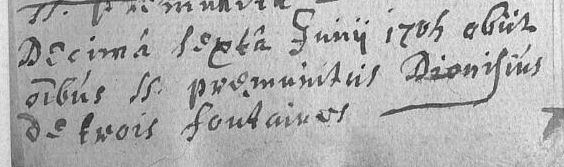 SS. premunita
Decimâ sextâ Junij 1705 obiit
oĩbus SS. premunitus Dionisius
de trois fontaines